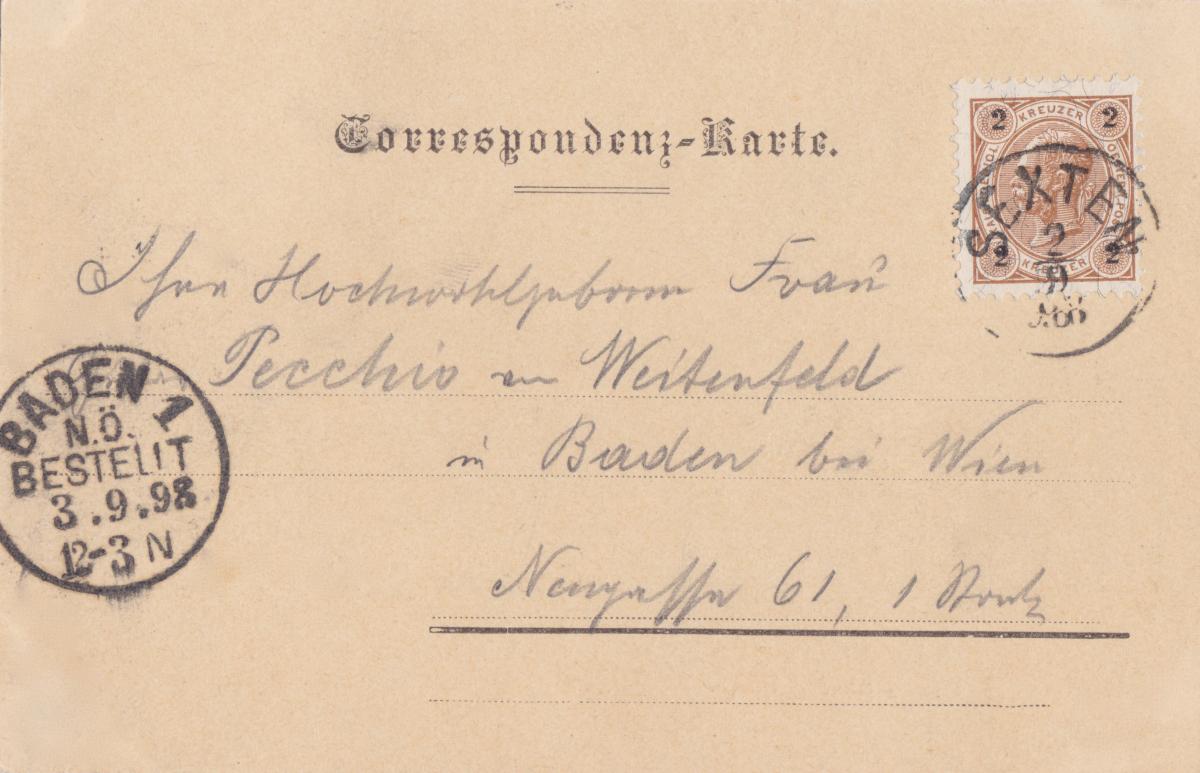 Correspondenz-Karte.
2 KREUZER 2
SEXTEN
2
9
2 KREUZER 2
Ihrer Hochwohlgeboren Frau
Pecchio von Weitenfeld
in Baden bei Wien
Neugasse 61, 1 Stock
BADEN 1
N.Ö.
BESTELLT
3.9.98
12-3 N